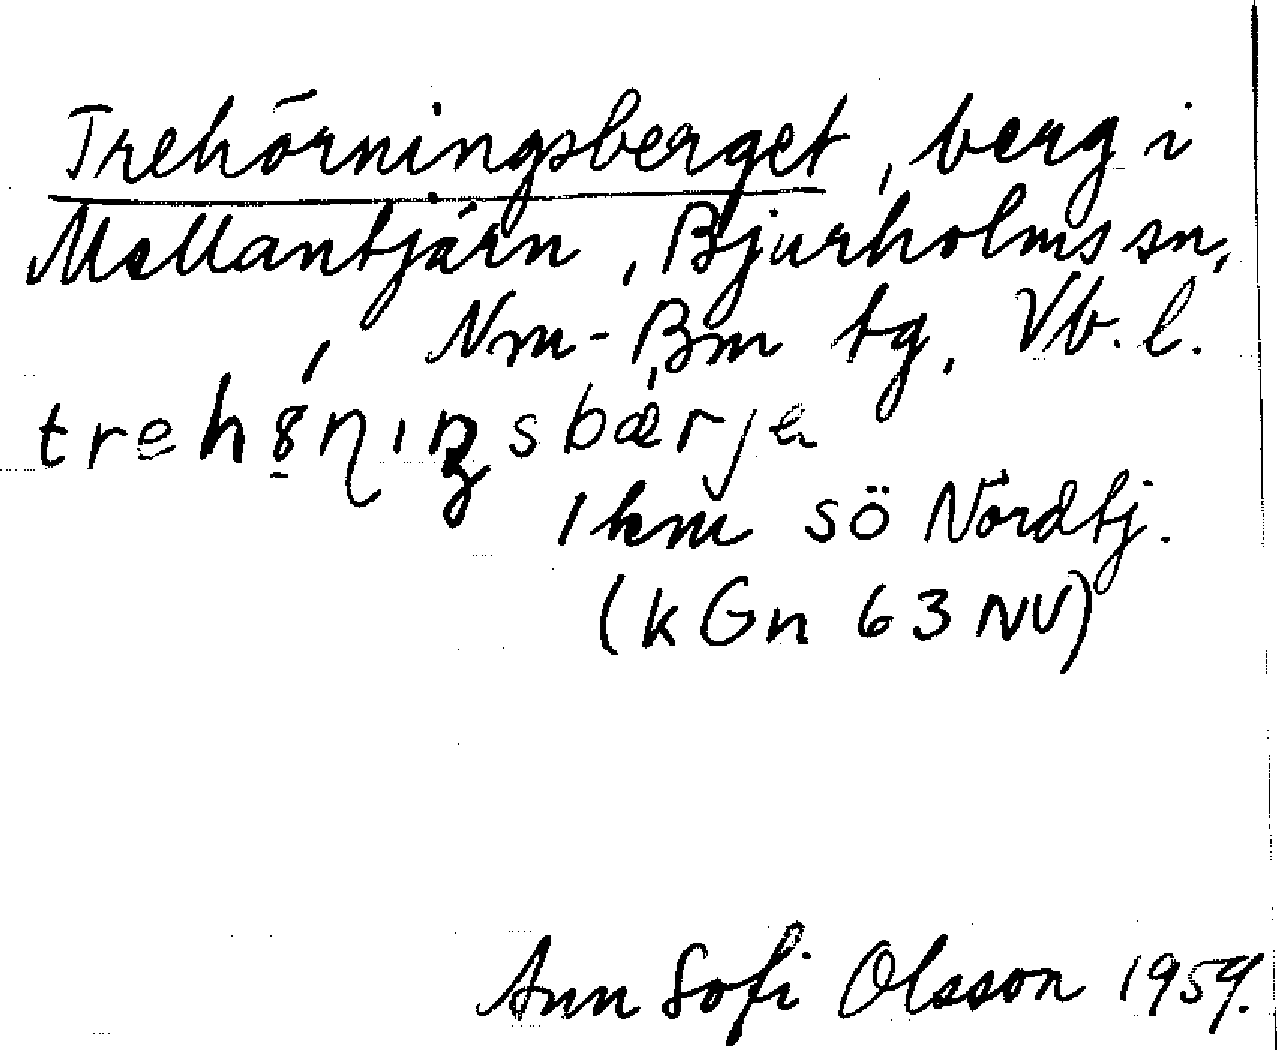 Trehörningsberget, berg i
Mellantjärn, Bjurholms sn,
Nm-Bm tg. Vb. l.
1 km sö Nordtj.
(k Gn 63 NV)
Ann Sofi Olsson 1959.